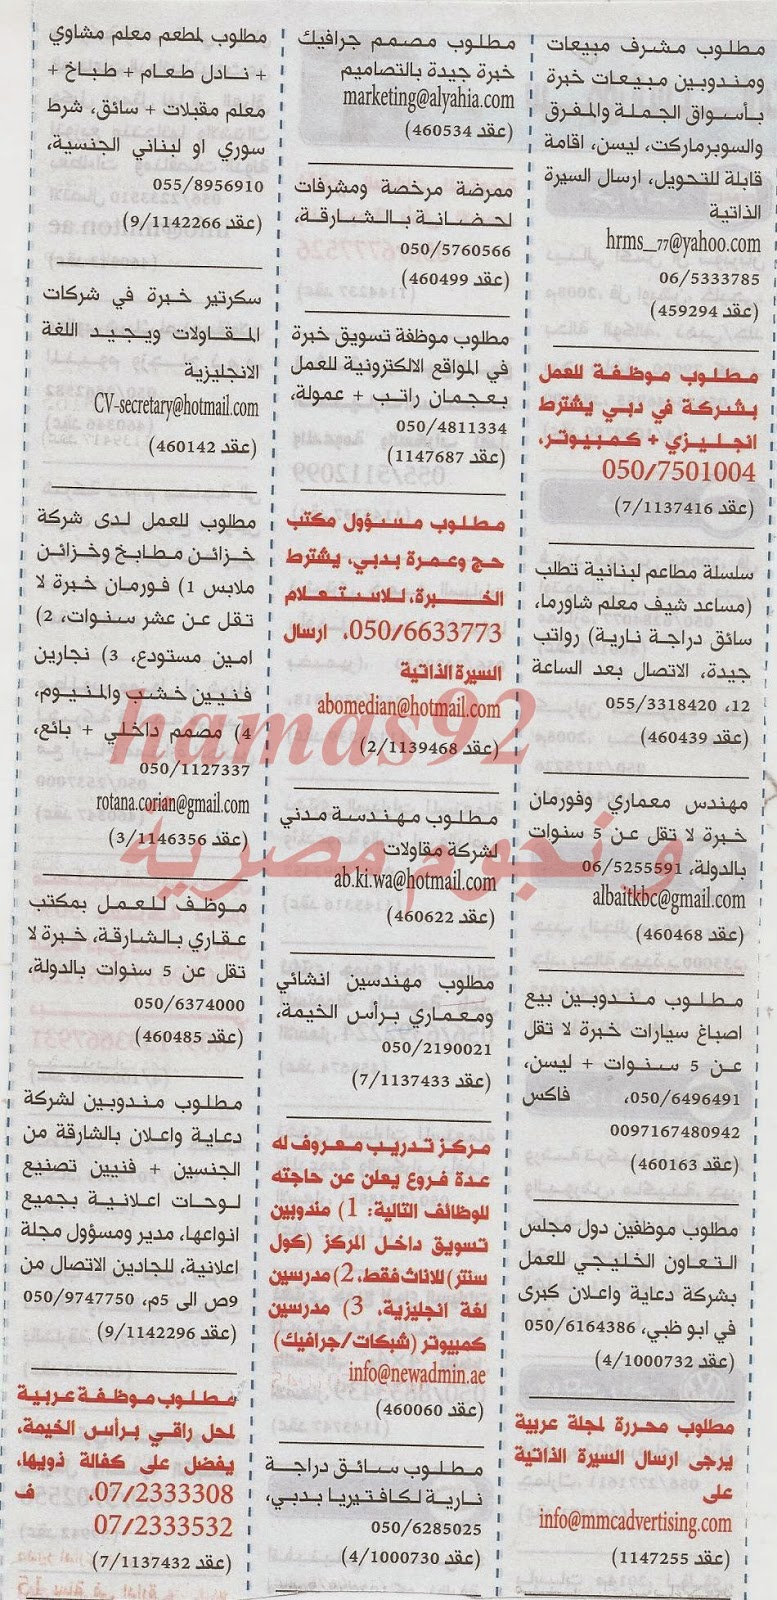 مطلوب مشرف مبيعات
ومندوبين مبيعات خبرة
بأسواق الجملة والمفرق
والسوبرماركت، ليسن، اقامة
قابلة للتحويل، ارسال السيرة
الذاتية
hrms_77@yahoo.com
06/5333785
(عقد 459294)
مطلوب موظفة للعمل
بشركة في دبي يشترط
انجليزي + كمبيوتر،
050/7501004
(عقد 7/1137416)
سلسلة مطاعم لبنانية تطلب
(مساعد شيف معلم شاورما،
سائق دراجة نارية) رواتب
جيدة، الاتصال بعد الساعة
12، 055/3318420
(عقد 460439)
مهندس معماري وفورمان
خبرة لا تقل عن 5 سنوات
بالدولة، 06/5255591
albaitkbc@gmail.com
(عقد 460468)
مطلوب مندوبين بيع
اصباغ سيارات خبرة لا تقل
عن 5 سنوات + ليسن،
050/6496491، فاكس
0097167480942
(عقد 460163)
مطلوب موظفين دول مجلس
التعاون الخليجي للعمل
بشركة دعاية واعلان كبرى
في ابو ظبي، 050/6164386
(عقد 4/1000732)
مطلوب محررة لمجلة عربية
يرجى ارسال السيرة الذاتية
على
info@mmcadvertising.com
(عقد 1147255)
مطلوب مصمم جرافيك
خبرة جيدة بالتصاميم
marketing@alyahia.com
(عقد 460534)
ممرضة مرخصة ومشرفات
لحضانة بالشارقة،
050/5760566
(عقد 460499)
مطلوب موظفة تسويق خبرة
في المواقع الالكترونية للعمل
بعجمان راتب + عمولة،
050/4811334
(عقد 1147687)
مطلوب مسؤول مكتب
حج وعمرة بدبي، يشترط
الخبرة، للاستعلام
050/6633773، ارسال
السيرة الذاتية
abomedian@hotmail.com
(عقد 2/1139468)
مطلوب مهندسة مدني
لشركة مقاولات
ab.ki.wa@hotmail.com
(عقد 460622)
مطلوب مهندسين انشائي
ومعماري برأس الخيمة،
050/2190021
(عقد 7/1137433)
مركز تدريب معروف له
عدة فروع يعلن عن حاجته
للوظائف التالية: 1) مندوبين
تسويق داخل المركز (كول
سنتر) للاناث فقط، 2) مدرسين
لغة انجليزية، 3) مدرسين
كمبيوتر (شبكات/جرافيك)
info@newadmin.ae
(عقد 460060)
مطلوب سائق دراجة
نارية لكافتيريا بدبي،
050/6285025
(عقد 4/1000730)
مطلوب لمطعم معلم مشاوي
+ نادل طعام + طباخ +
معلم مقبلات + سائق، شرط
سوري او لبناني الجنسية،
055/8956910
(عقد 9/1142266)
سكرتير خبرة في شركات
المقاولات ويجيد اللغة
الانجليزية
CV-secretary@hotmail.com
(عقد 460142)
مطلوب للعمل لدى شركة
خزائن مطابخ وخزائن
ملابس 1) فورمان خبرة لا
تقل عن عشر سنوات، 2)
امين مستودع، 3) نجارين
فنيين خشب والمنيوم،
4) مصمم داخلي + بائع،
050/1127337
rotana.corian@gmail.com
(عقد 3/1146356)
موظف للعمل بمكتب
عقاري بالشارقة، خبرة لا
تقل عن 5 سنوات بالدولة،
050/6374000
(عقد 460485)
مطلوب مندوبين لشركة
دعاية واعلان بالشارقة من
الجنسين + فنيين تصنيع
لوحات اعلانية بجميع
انواعها، مدير ومسؤول مجلة
اعلانية، للجادين الاتصال من
9ص الى 5م، 050/9747750
(عقد 9/1142296)
مطلوب موظفة عربية
لمحل راقي برأس الخيمة،
يفضل على كفالة ذويها،
07/2333308، ف
07/2333532
(عقد 7/1137432)
hamas92
ونجوم مصرية